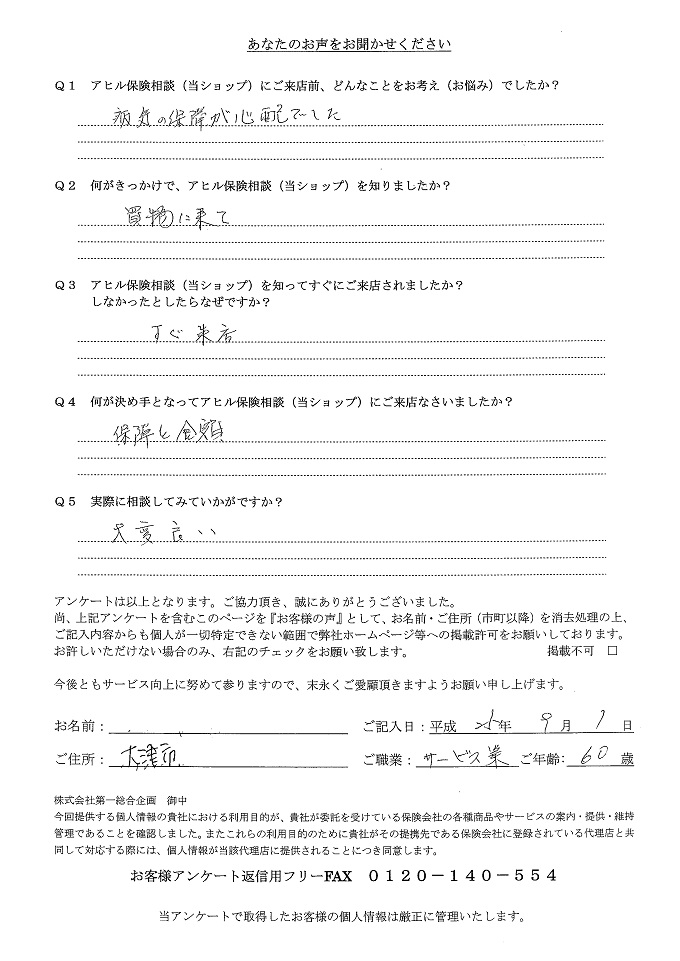 あなたのお声をお聞かせください
Q1 アヒル保険相談(当ショップ)にご来店前、どんなことをお考え(お悩み)でしたか?
病気の保障が心配でした
Q2 何がきっかけで、アヒル保険相談(当ショップ)を知りましたか?
買物に来て
Q3 アヒル保険相談(当ショップ)を知ってすぐにご来店されましたか?
しなかったとしたらなぜですか?
すぐ来店
Q4 何が決め手となってアヒル保険相談(当ショップ)にご来店なさいましたか?
保障と金額
Q5 実際に相談してみていかがですか?
大変良い
アンケートは以上となります。ご協力頂き、誠にありがとうございました。
尚、上記アンケートを含むこのページを『お客様の声』として、お名前・ご住所(市町以降)を消去処理の上、
ご記入内容からも個人が一切特定できない範囲で弊社ホームページ等への掲載許可をお願いしております。
お許しいただけない場合のみ、右記のチェックをお願い致します。 掲載不可 □
今後ともサービス向上に努めて参りますので、末永くご愛顧頂きますようお願い申し上げます。
お名前: ご記入日:平成 25年 9月 1日
ご住所: 大津市 ご職業:サービス業 ご年齢:60歳
株式会社第一総合企画 御中
今回提供する個人情報の貴社における利用目的が、貴社が委託を受けている保険会社の各種商品やサービスの案内・提供・維持
管理であることを確認しました。またこれらの利用目的のために貴社がその提携先である保険会社に登録されている代理店と共
同して対応する際には、個人情報が当該代理店に提供されることにつき同意します。
お客様アンケート返信用フリーFAX 0120-140-554
当アンケートで取得したお客様の個人情報は厳正に管理いたします。